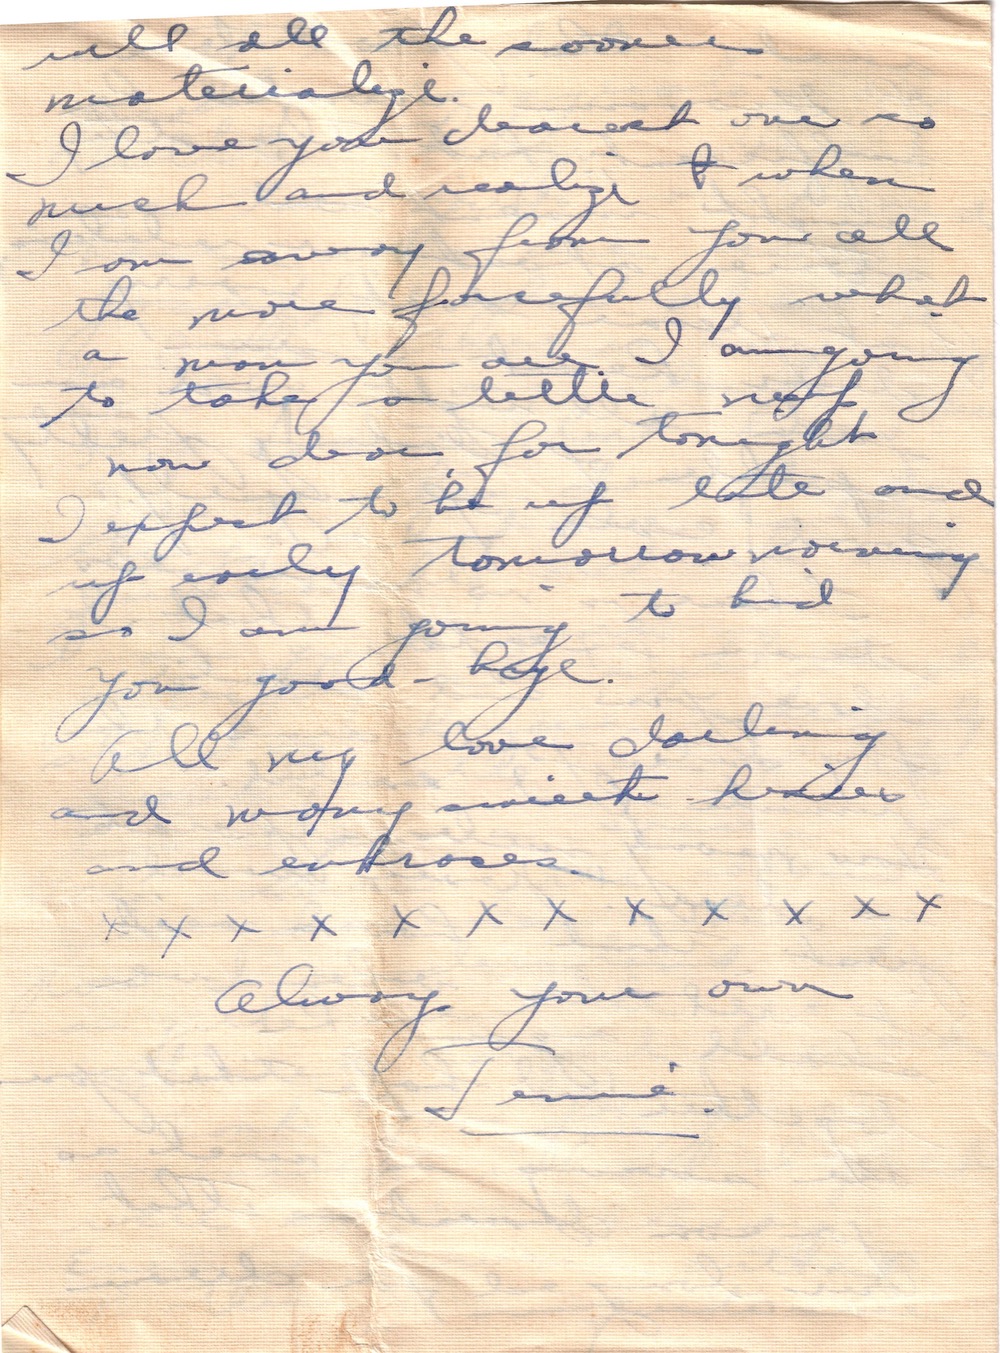 will all the sooner
materialize.
I love you dearest one so
much and realize & when
I am away from you all
the more forcefully what
a man you are. I am going
to take a little nap
now dear, for tonight
I expect to be up late and
up early tomorrow morning
so I am going to bid
you good-bye.
All my love darling
and many sweet kisses
and embraces.
x x x x x x x x x x x x
Always your own